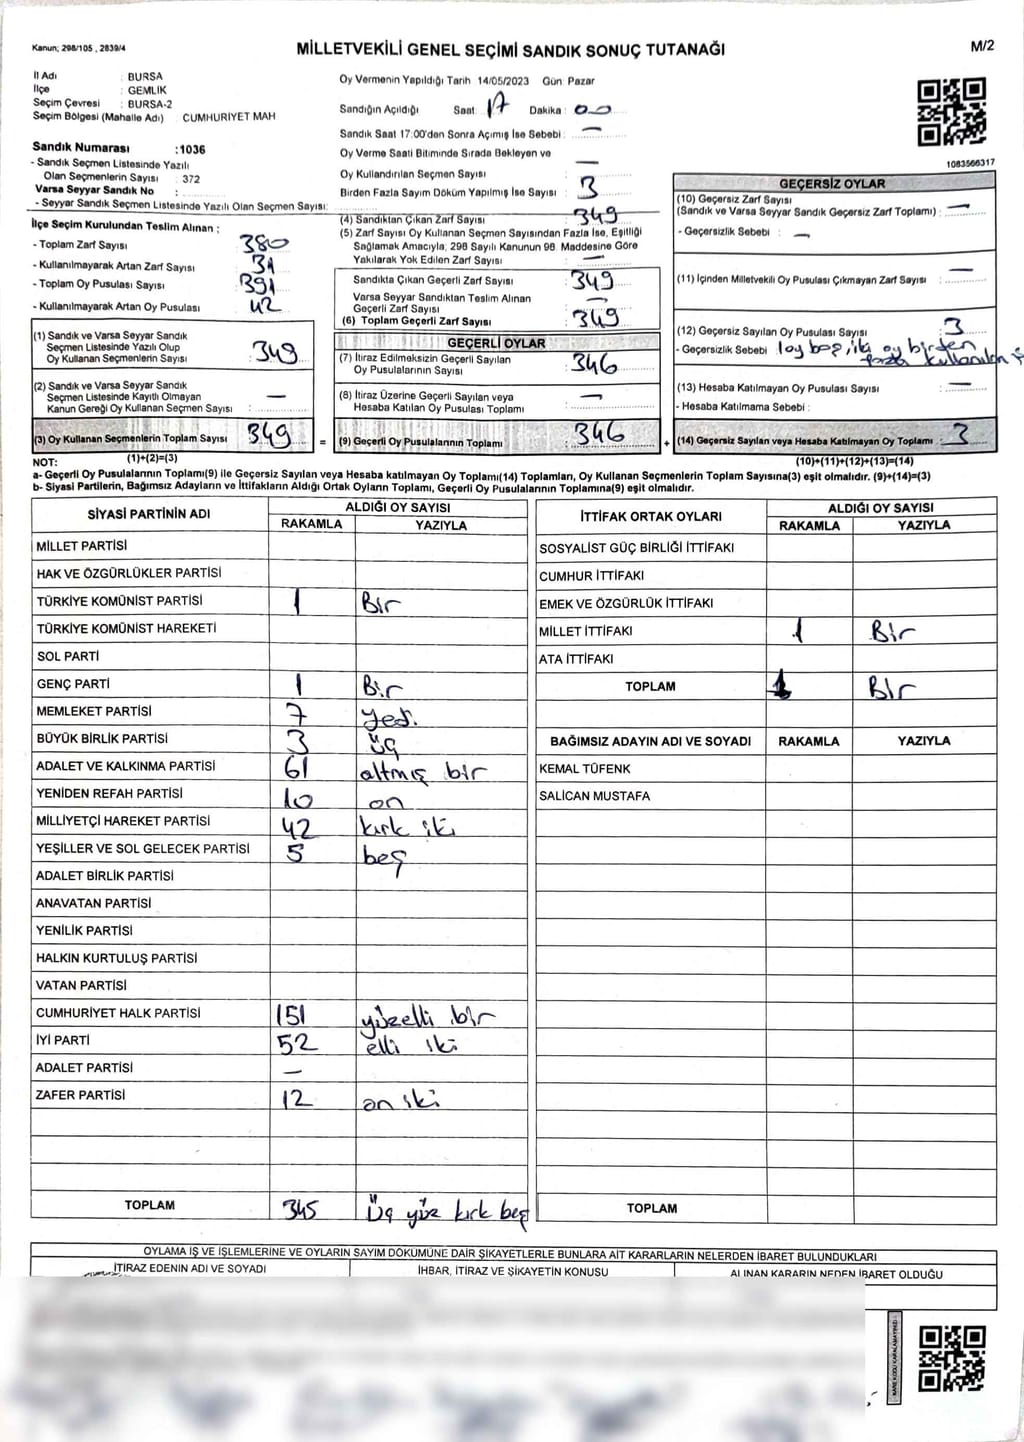 Kanun; 298/105 , 2839/4
MİLLETVEKİLİ GENEL SEÇİMİ SANDIK SONUÇ TUTANAĞI
M/2
İl Adı : BURSA
İlçe : GEMLİK
Seçim Çevresi : BURSA-2
Seçim Bölgesi (Mahalle Adı) CUMHURİYET MAH
Sandık Numarası :1036
- Sandık Seçmen Listesinde Yazılı
Olan Seçmenlerin Sayısı : 372
Varsa Seyyar Sandık No :
- Seyyar Sandık Seçmen Listesinde Yazılı Olan Seçmen Sayısı:
Oy Vermenin Yapıldığı Tarih 14/05/2023 Gün Pazar
Sandığın Açıldığı Saat: 17 Dakika : 00
Sandık Saat 17:00'den Sonra Açımış İse Sebebi : —
Oy Verme Saati Bitiminde Sırada Bekleyen ve
Oy Kullandırılan Seçmen Sayısı : —
Birden Fazla Sayım Döküm Yapılmış İse Sayısı : 3
1083566317
İlçe Seçim Kurulundan Teslim Alınan ;
- Toplam Zarf Sayısı : 380
- Kullanılmayarak Artan Zarf Sayısı : 31
- Toplam Oy Pusulası Sayısı : 391
- Kullanılmayarak Artan Oy Pusulası : 42
(1) Sandık ve Varsa Seyyar Sandık
Seçmen Listesinde Yazılı Olup
Oy Kullanan Seçmenlerin Sayısı : 349
(2) Sandık ve Varsa Seyyar Sandık
Seçmen Listesinde Kayıtlı Olmayan
Kanun Gereği Oy Kullanan Seçmen Sayısı : —
(3) Oy Kullanan Seçmenlerin Toplam Sayısı : 349
(1)+(2)=(3)
(4) Sandıktan Çıkan Zarf Sayısı : 349
(5) Zarf Sayısı Oy Kullanan Seçmen Sayısından Fazla İse, Eşitliği
Sağlamak Amacıyla; 298 Sayılı Kanunun 98. Maddesine Göre
Yakılarak Yok Edilen Zarf Sayısı : —
Sandıkta Çıkan Geçerli Zarf Sayısı : 349
Varsa Seyyar Sandıktan Teslim Alınan
Geçerli Zarf Sayısı : —
(6) Toplam Geçerli Zarf Sayısı : 349
GEÇERLİ OYLAR
(7) İtiraz Edilmeksizin Geçerli Sayılan
Oy Pusulalarının Sayısı : 346
(8) İtiraz Üzerine Geçerli Sayılan veya
Hesaba Katılan Oy Pusulası Toplamı : —
= (9) Geçerli Oy Pusulalarının Toplamı : 346
GEÇERSİZ OYLAR
(10) Geçersiz Zarf Sayısı
(Sandık ve Varsa Seyyar Sandık Geçersiz Zarf Toplamı) : —
- Geçersizlik Sebebi : —
(11) İçinden Milletvekili Oy Pusulası Çıkmayan Zarf Sayısı : —
(12) Geçersiz Sayılan Oy Pusulası Sayısı : 3
- Geçersizlik Sebebi 1 oy boş, iki oy birden
fazla kullanılan
(13) Hesaba Katılmayan Oy Pusulası Sayısı : —
- Hesaba Katılmama Sebebi :
+ (14) Geçersiz Sayılan veya Hesaba Katılmayan Oy Toplamı : 3
(10)+(11)+(12)+(13)=(14)
NOT:
a- Geçerli Oy Pusulalarının Toplamı(9) ile Geçersiz Sayılan veya Hesaba katılmayan Oy Toplamı(14) Toplamları, Oy Kullanan Seçmenlerin Toplam Sayısına(3) eşit olmalıdır. (9)+(14)=(3)
b- Siyasi Partilerin, Bağımsız Adayların ve İttifakların Aldığı Ortak Oyların Toplamı, Geçerli Oy Pusulalarının Toplamına(9) eşit olmalıdır.
SİYASİ PARTİNİN ADI ALDIĞI OY SAYISI
RAKAMLA YAZIYLA
MİLLET PARTİSİ
HAK VE ÖZGÜRLÜKLER PARTİSİ
TÜRKİYE KOMÜNİST PARTİSİ 1 Bir
TÜRKİYE KOMÜNİST HAREKETİ
SOL PARTİ
GENÇ PARTİ 1 Bir
MEMLEKET PARTİSİ 7 yedi
BÜYÜK BİRLİK PARTİSİ 3 üç
ADALET VE KALKINMA PARTİSİ 61 altmış bir
YENİDEN REFAH PARTİSİ 10 on
MİLLİYETÇİ HAREKET PARTİSİ 42 kırk iki
YEŞİLLER VE SOL GELECEK PARTİSİ 5 beş
ADALET BİRLİK PARTİSİ
ANAVATAN PARTİSİ
YENİLİK PARTİSİ
HALKIN KURTULUŞ PARTİSİ
VATAN PARTİSİ
CUMHURİYET HALK PARTİSİ 151 yüzelli bir
İYİ PARTİ 52 elli iki
ADALET PARTİSİ —
ZAFER PARTİSİ 12 on iki
TOPLAM 345 Üç yüz kırk beş
İTTİFAK ORTAK OYLARI ALDIĞI OY SAYISI
RAKAMLA YAZIYLA
SOSYALİST GÜÇ BİRLİĞİ İTTİFAKI
CUMHUR İTTİFAKI
EMEK VE ÖZGÜRLÜK İTTİFAKI
MİLLET İTTİFAKI 1 Bir
ATA İTTİFAKI
TOPLAM 1 Bir
BAĞIMSIZ ADAYIN ADI VE SOYADI RAKAMLA YAZIYLA
KEMAL TÜFENK
SALİCAN MUSTAFA
TOPLAM
OYLAMA İŞ VE İŞLEMLERİNE VE OYLARIN SAYIM DÖKÜMÜNE DAİR ŞİKAYETLERLE BUNLARA AİT KARARLARIN NELERDEN İBARET BULUNDUKLARI
İTİRAZ EDENİN ADI VE SOYADI İHBAR, İTİRAZ VE ŞİKAYETİN KONUSU ALINAN KARARIN NEDEN İBARET OLDUĞU
KARE KODU KARALAMAYINIZ!